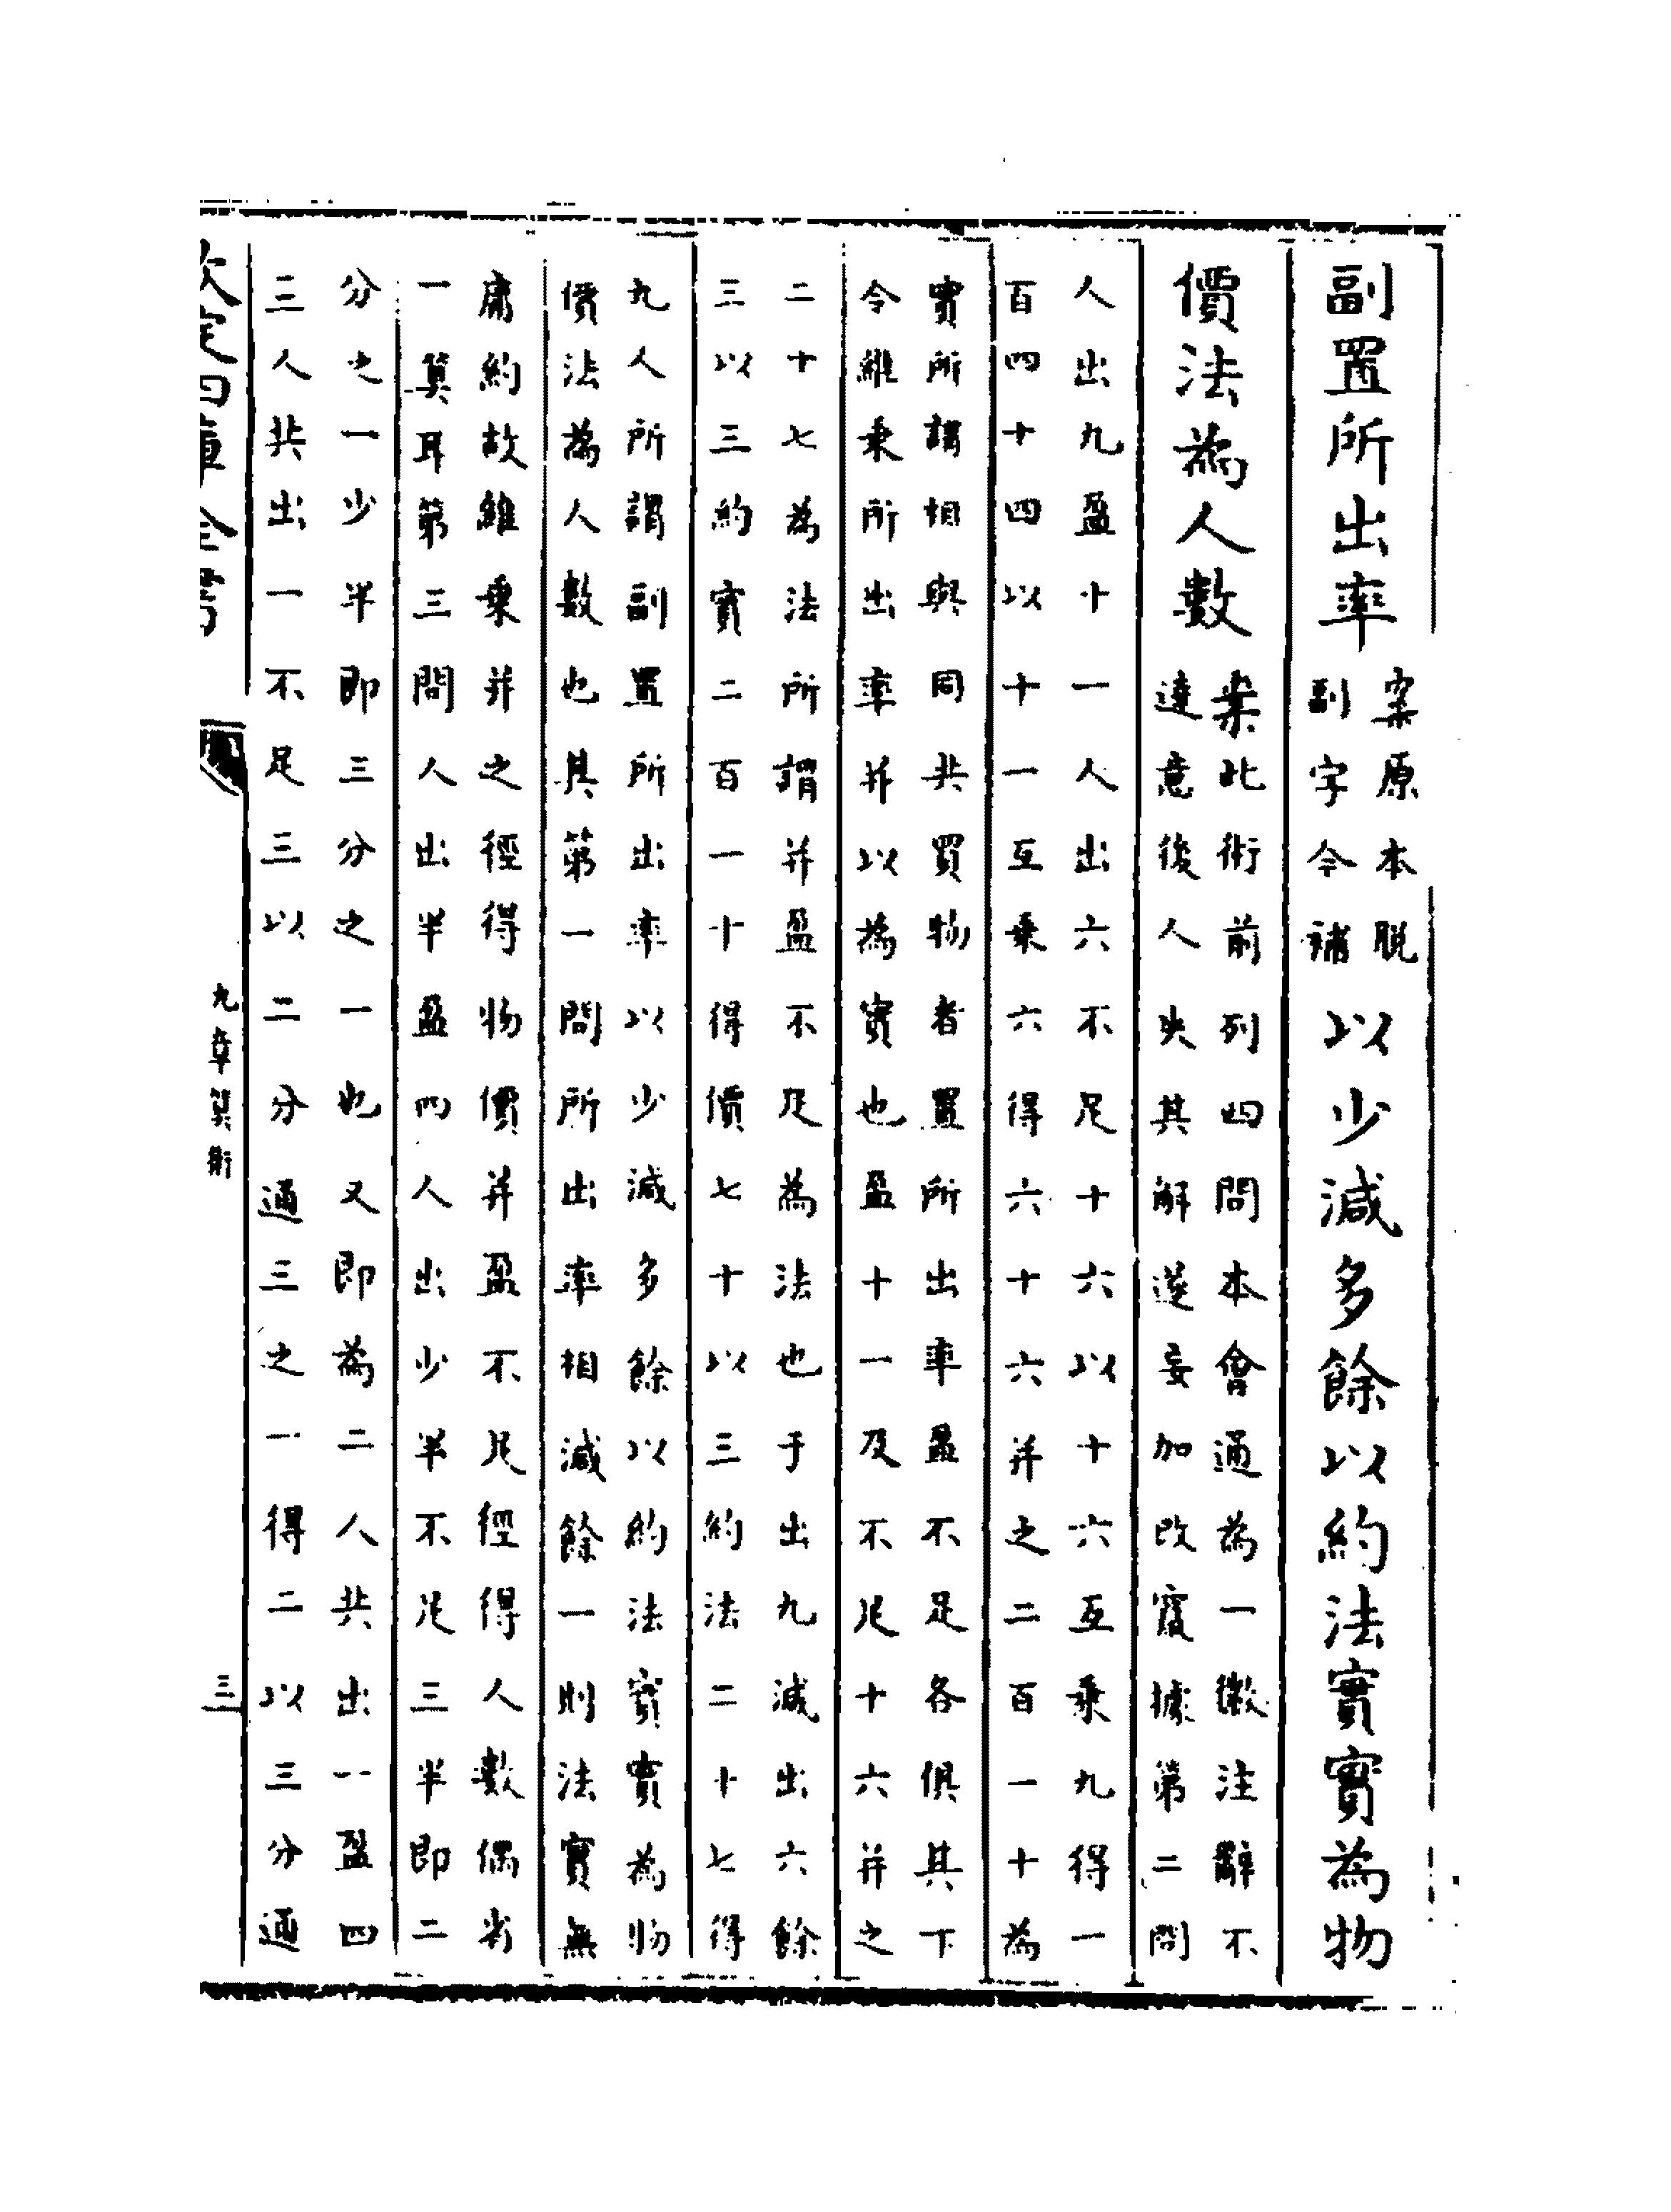 副置所出率案原本脫
副字今補以少減多餘以約法實實為物
價法為人數案此術前列四問本會通為一徽注辭不
達意後人失其解遂妄加改竄據第二問
人出九盈十一人出六不足十六以十六互乘九得一
百四十四以十一互乘六得六十六并之二百一十為
實所謂相與同共買物者置所出率盈不足各俱其下
今維乘所出率并以為實也盈十一及不足十六并之
二十七為法所謂并盈不足為法也于出九減出六餘
三以三約實二百一十得價七十以三約法二十七得
九人所謂副置所出率以少減多餘以約法實實為物
價法為人數也其第一問所出率相減餘一則法實無
庸約故維乘并之徑得物價并盈不足徑得人數偶省
一算耳第三問人出半盈四人出少半不足三半即二
分之一少半即三分之一也又即為二人共出一盈四
三人共出一不足三以二分通三之一得二以三分通
欽定四庫全書
九章算術
三